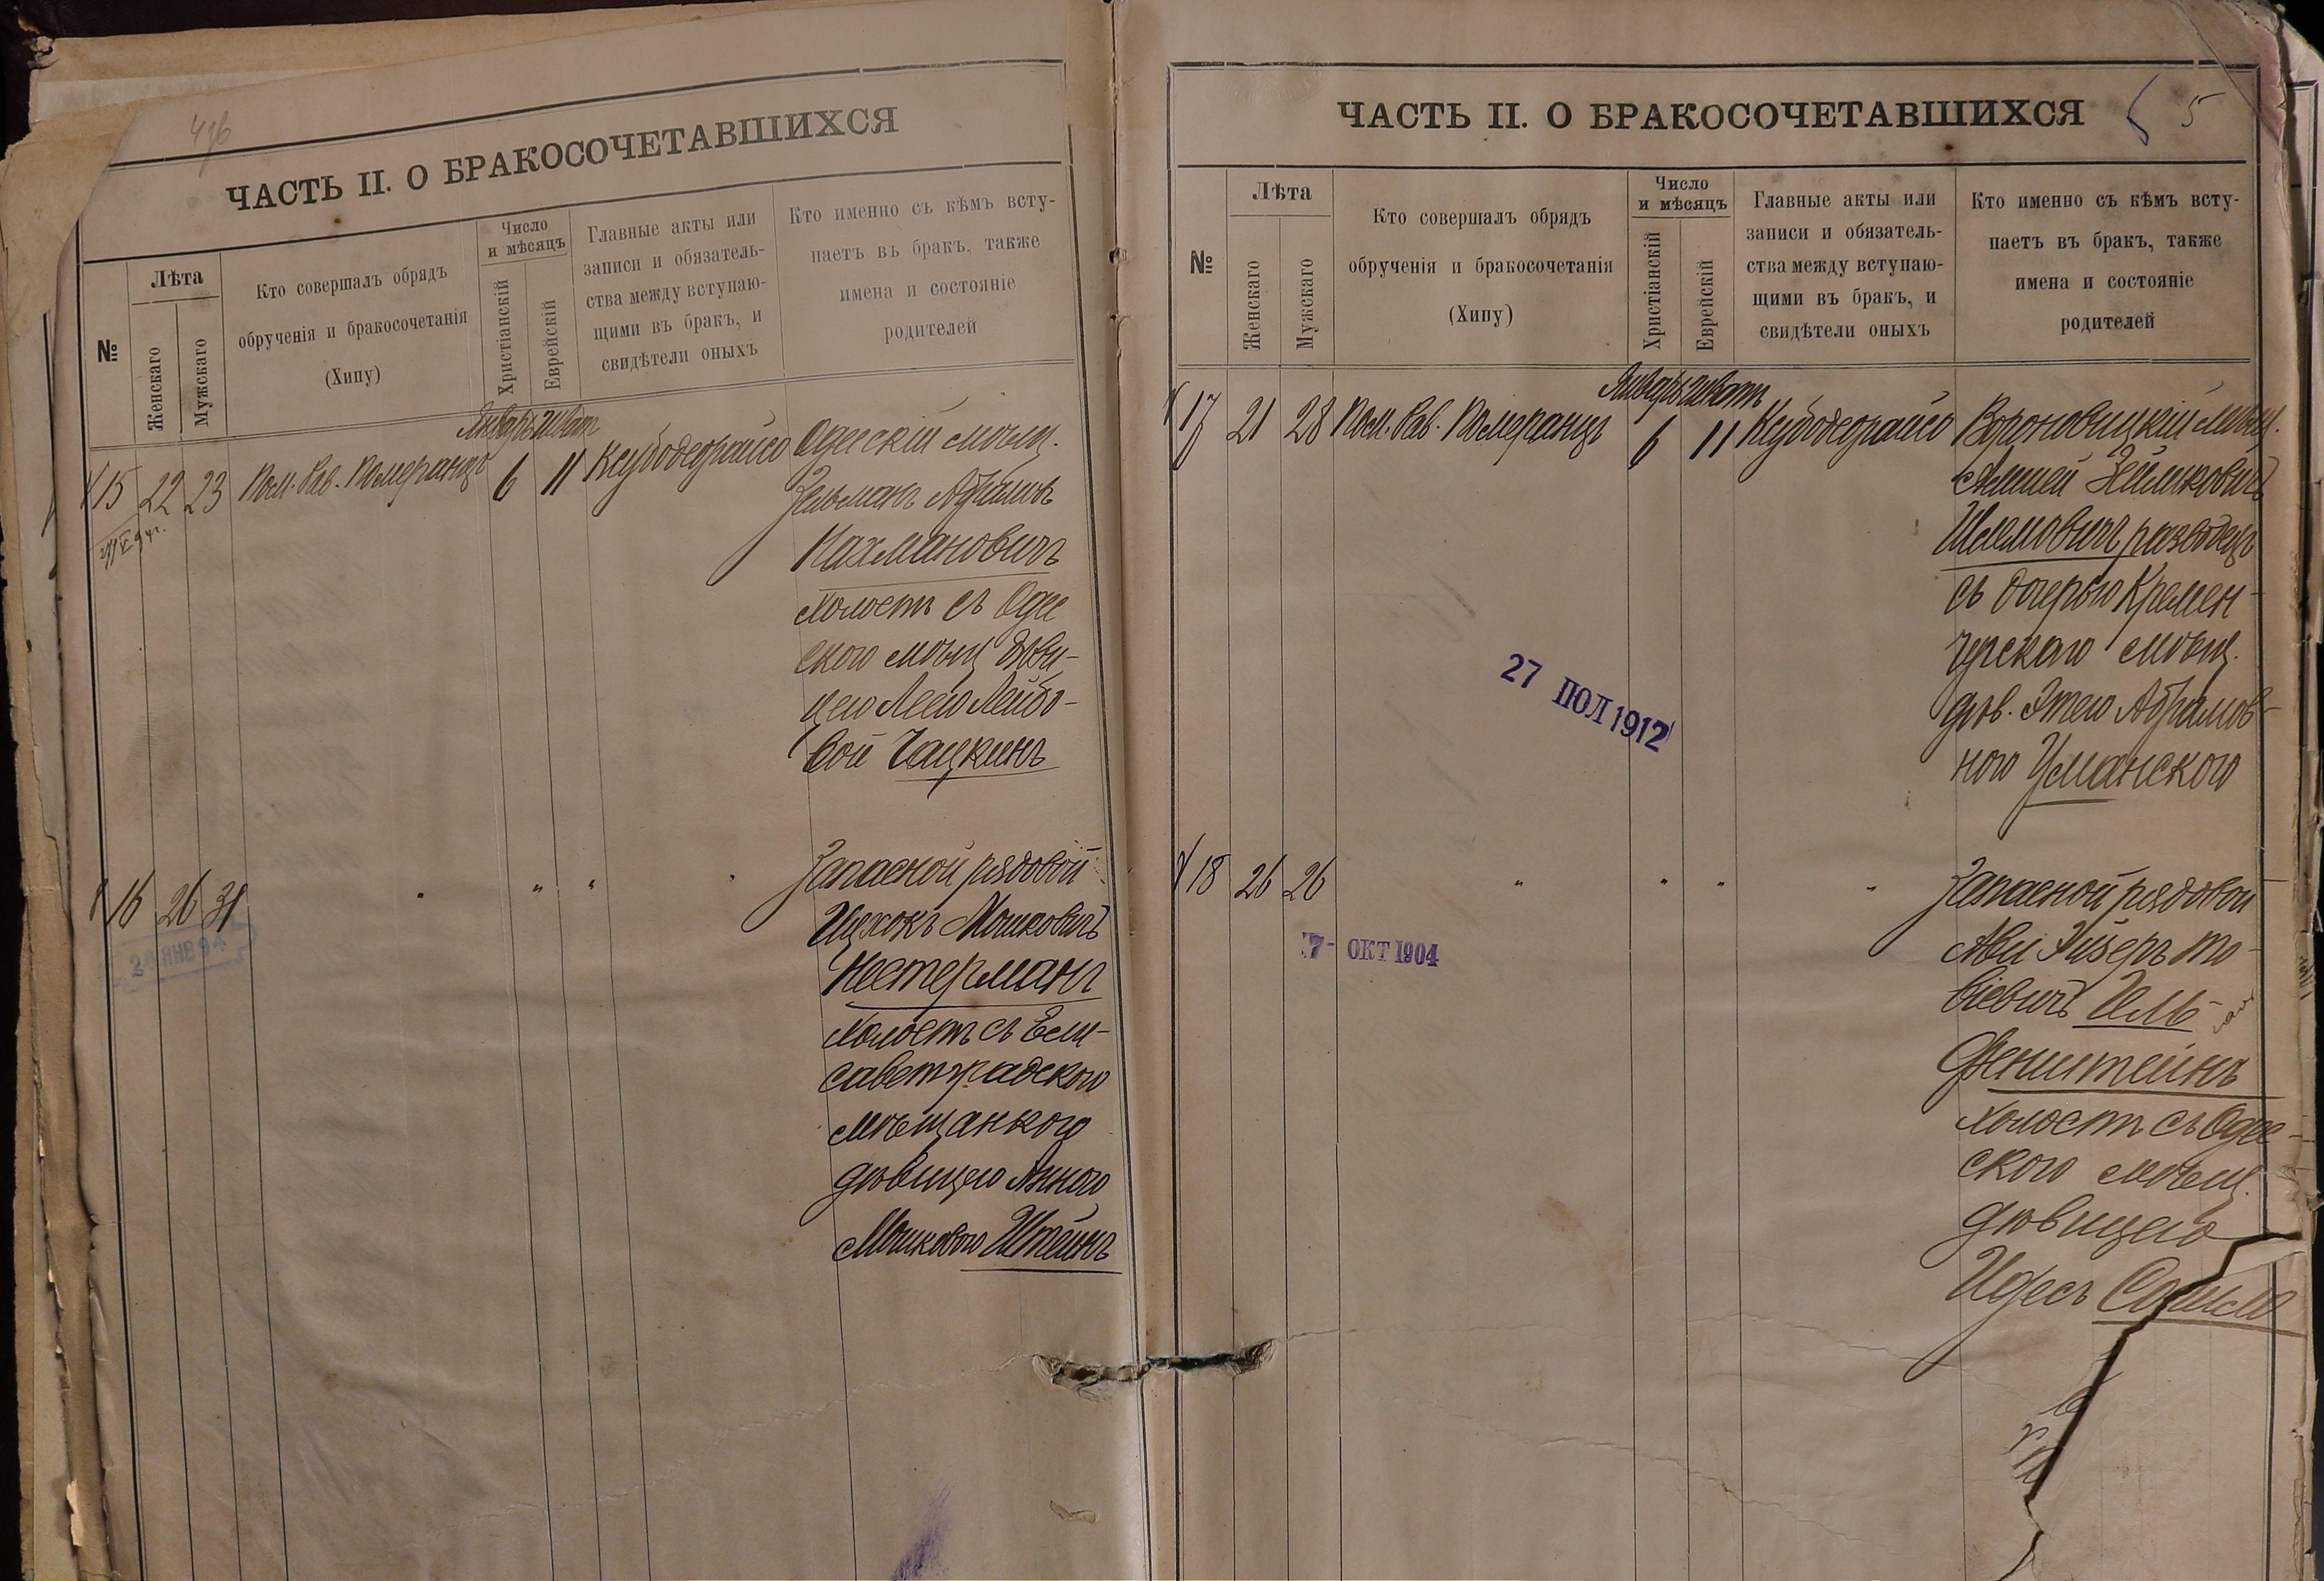 4/6
ЧАСТЬ II. О БРАКОСОЧЕТАВШИХСЯ
№
Лѣта
Женскаго
Мужскаго
Кто совершалъ обрядъ
обрученія и бракосочетанія
(Хипу)
Число
и мѣсяцъ
Христіанскій
Еврейскій
Главные акты или
записи и обязатель-
ства между вступаю-
щими въ бракъ, и
свидѣтели оныхъ
Кто именно съ кѣмъ всту-
паетъ въ бракъ, также
имена и состояніе
родителей
Январь Шват
15 22 23 Пом. Рав. Померанцъ 6 11 Ксубодеорайсо Одесскій мѣщ.
Зельманъ Абрамов
Нахмановичъ
холостъ съ Одес
ского мѣщ Дѣви-
цею Леею Лейбо-
вой Чацкинъ
16 26 31 " " " " Запасной рядовой
Ицхокъ Мошковичъ
Нестерманъ
холостъ съ Ели-
саветградского
мѣщанкого
дѣвицею Анною
Мошковою Штейнъ
24 ЯНВ 94
ЧАСТЬ II. О БРАКОСОЧЕТАВШИХСЯ
5
№
Лѣта
Женскаго
Мужскаго
Кто совершалъ обрядъ
обрученія и бракосочетанія
(Хипу)
Число
и мѣсяцъ
Христіанскій
Еврейскій
Главные акты или
записи и обязатель-
ства между вступаю-
щими въ бракъ, и
свидѣтели оныхъ
Кто именно съ кѣмъ всту-
паетъ въ бракъ, также
имена и состояніе
родителей
Январь Шват
17 21 28 Пом. Рав. Померанцъ 6 11 Ксубодеорайсо Вороновицкій мѣщ.
Зейликовичъ
Шлемовичъ разводецъ
съ дочерью Кремен-
чугскаго мѣщ.
дѣв. Этею Абрамов-
ного Уманского
27 ІЮЛ 1912
18 26 26 " " " " Запасной рядовой
Аби Эйзеръ То-
біевичъ Иль-
Фенштейнъ
холостъ съ Одес-
ского мѣщ.
дѣвицею
Идесъ
7- ОКТ 1904